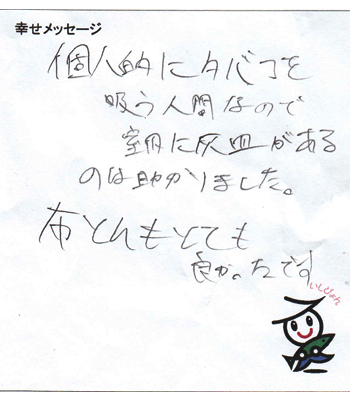 幸せメッセージ
個人的にタバコを
吸う人間なので
室内に灰皿がある
のは助かりました。
布とんもとても
良かったです